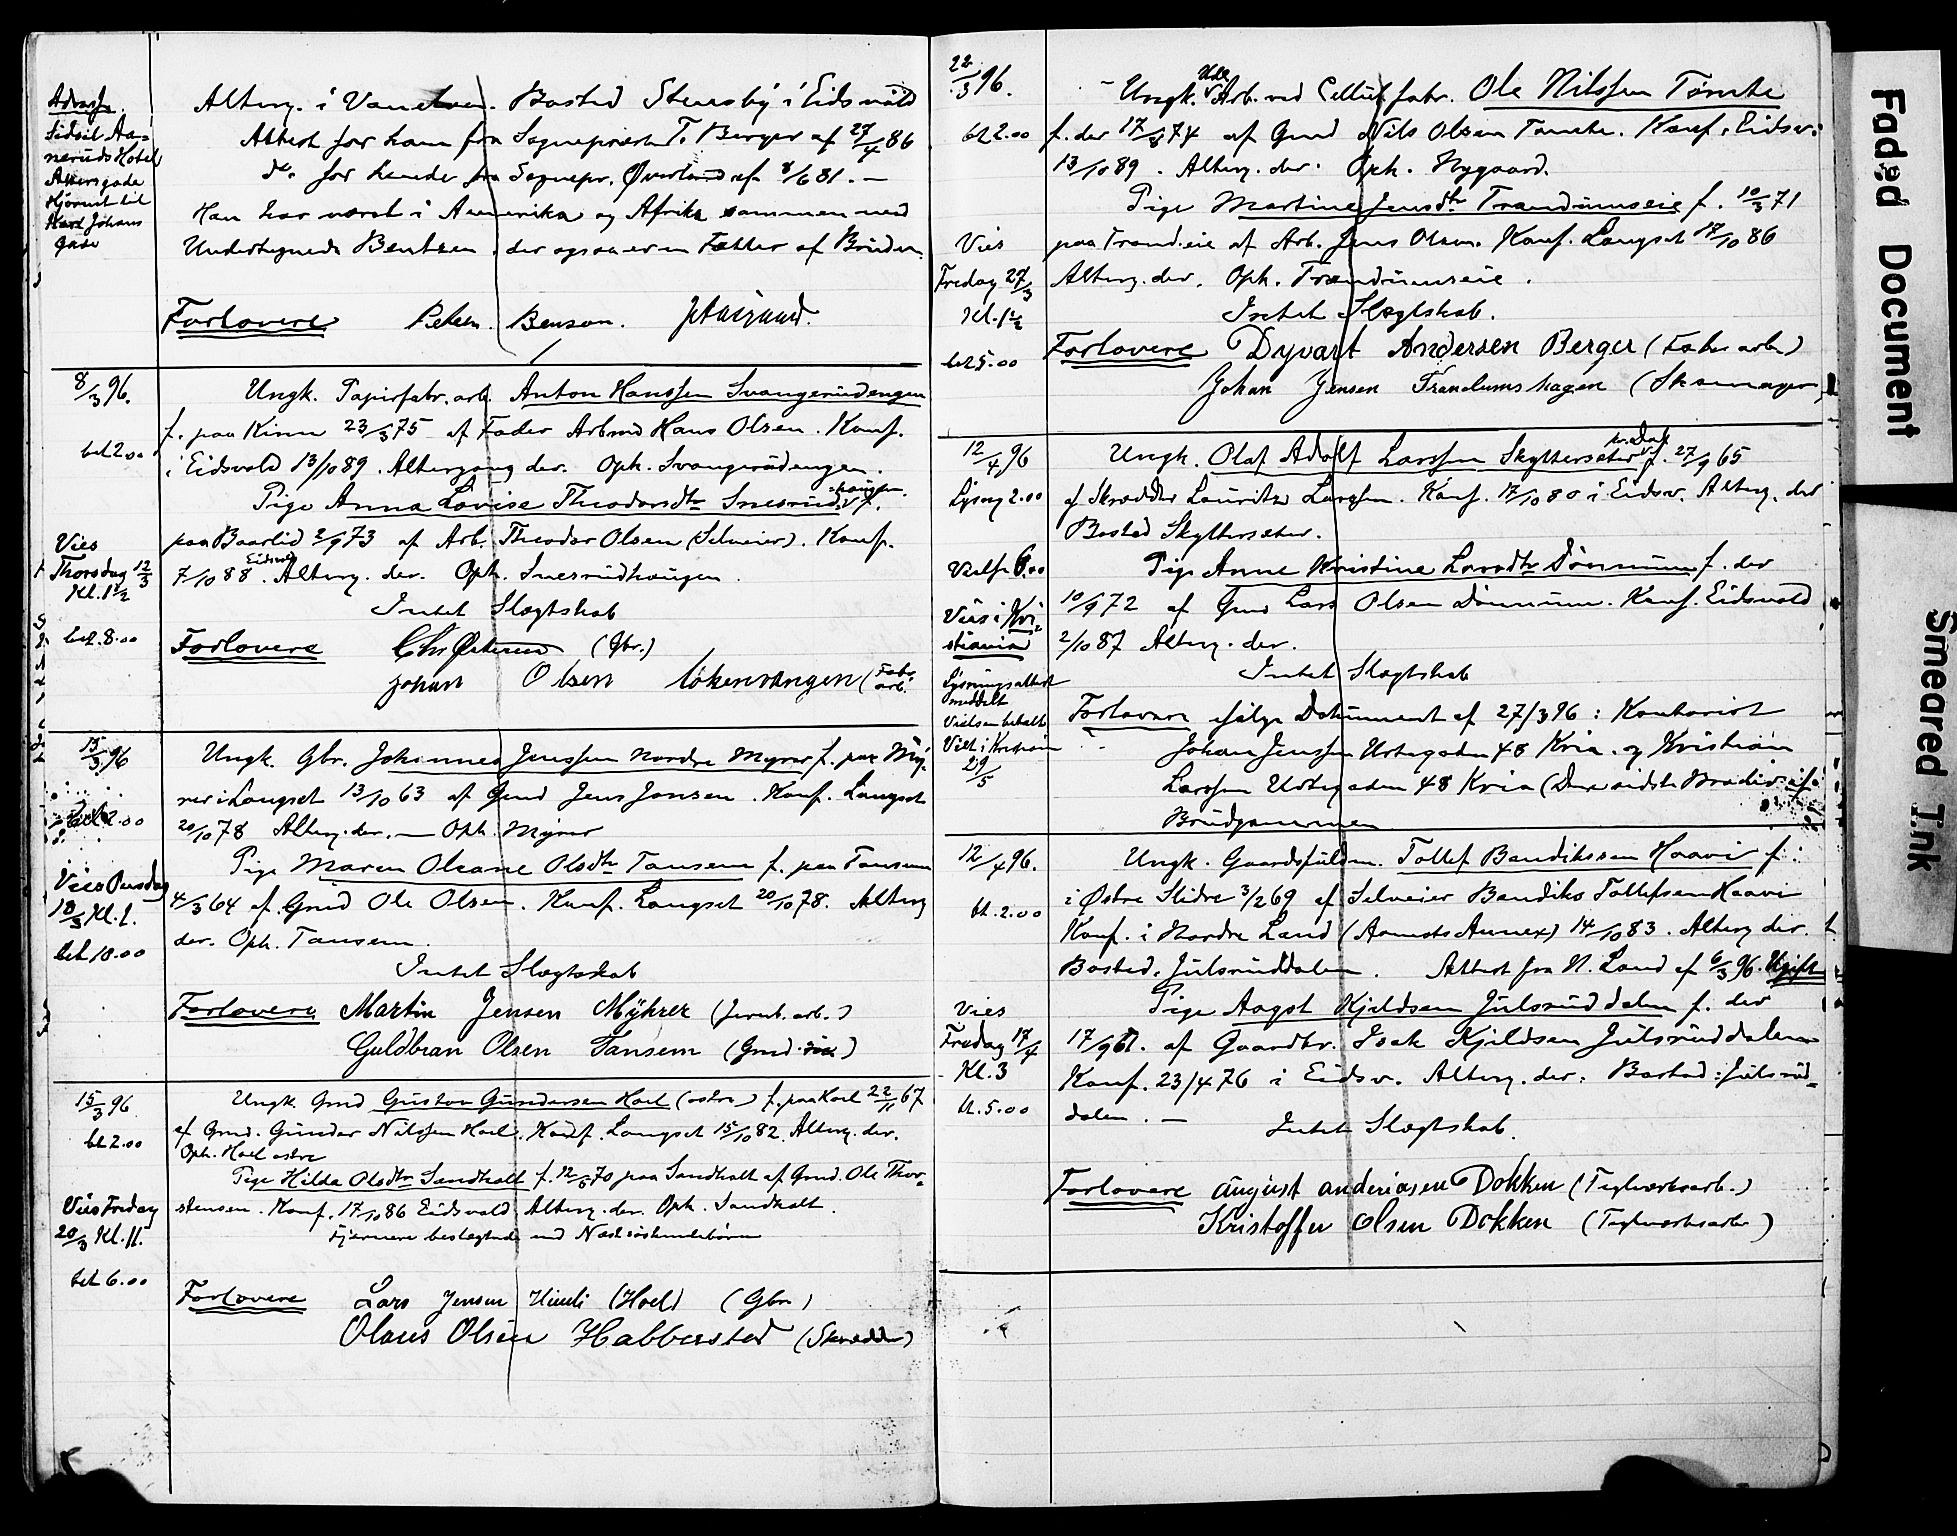 Adresse.
Sidsel Aa=
neruds Hotel
Akersgade
Hjørnet til
Karl Johans
gade
Alterg. i Vandven. Bosted Stensby i Eidsvold
Attest for ham fra Sognepræst T. Berger af 27/4 86
do. for hende fra Sognepr. Øverland af 8/6 81. —
Han har været i Amerika og Afrika sammen med
Undertegnede Bentsen, der ogsaa er en Fætter af Bruden.
Forlovere Peter Benson.
8/3 96.
bet 2.00
Vies
Thorsdag 12/3
Kl. 1½
bet. 8.00
Ungk. Papirfabr. arb. Anton Hanssen Svangerudengen
f. paa Kinn 23/3 75 af Fader Arbmd Hans Olsen. Konf.
i Eidsvold 13/10 89. Altergang der. Oph. Svangerudengen.
Pige Anna Lovise Theodorsdtr Snesrud haugen. f.
paa Baarlid 2/9 73 af Arb. Theodor Olsen (Selveier). Konf.
7/10 88 Eidsvold. Alterg. der. Oph. Snesrudhaugen.
Intet Slægtskab
Forlovere (Gbr.)
Johan Olsen Løkenvangen (Fabr. arb.)
15/3 96
bet 2.00
Vies Onsdag
18/3 Kl. 1.
bet 10.00
Ungk. Gbr. Johannes Jenssen Nordre Myrer f. paa My-
rer i Langset 13/10 63 af Gmd Jens Jonsen. Konf. Langset
20/10 78 Alterg. der. — Oph. Myrer
Pige Maren Oleane Olsdtr Tansem f. paa Tansem
4/3 64 af Gmd Ole Olsen. Konf. Langset 20/10 78. Alterg
der. Oph. Tansem.
Intet Slægtskab
Forlovere Martin Jensen Myhrer (Jernb. arb.)
Guldbran Olsen Tansem (Gmd)
15/3 96.
bet 2.00
Vies Fredag
20/3 Kl. 11.
bet 6.00
Ungk. Gmd Gustav Gundersen Hoel (østre) f. paa Hoel 22/11 67
af Gmd. Gunder Nilssen Hoel. Konf. Langset 15/10 82. Alterg. der.
Oph. Hoel østre
Pige Hilda Olsdtr Sandholt f. 12/5 70 paa Sandholt af Gmd. Ole Thor=
stensen. Konf. 17/10 86 Eidsvold Alterg. der. Oph. Sandholt.
Fjernere beslægtede end Næstsøskendebørn
Forlovere Lars Jensen Himli (Hoel) (Gbr.)
Olaus Olsen Habberstad (Skrædder)
22/3 96.
bet 2.00
Vies
Fredag 27/3
Kl. 1½
bet 5.00
Ungk. Arb. ved Cellul. fabr. Ole Nilssen Tømte
f. der 17/3 74 af Gmd Nils Olsen Tømte. Konf. i Eidsv.
13/10 89. Alterg. der. Oph. Nygaard.
Pige Martine Jensdtr Trandumseie f. 10/3 71
paa Trand.eie af Arb. Jens Olsen. Konf. Langset 17/10 86
Alterg. der. Oph. Trandumseie.
Intet Slægtskab.
Forlovere Dyvart Andersen Berger (Fabr arb.)
Johan Jensen Trandumshagen (Skomager)
12/4 96
Lysng 2.00
Vielse 6.00
Vies i Kri-
stiania
Lysningsattest
meddelt
Vielsen betalt
Viet i Kristiania
29/5
Ungk. Olaf Adolf Larssen Skytterseter f. 27/9 65
af Skrædder Lauritz Larssen. Konf. 17/10 80 i Eidsv. Alterg. der
Bosted Skytterseter.
Pige Anne Kristine Larsdtr Dønnum f. der
10/9 72 af Gmd Lars Olsen Dønnum. Konf. Eidsvold
2/10 87 Alterg. der.
Intet Slægtskab
Forlovere ifølge Dokument af 27/3 96: Kontorist
Johan Jenssen Urtegaden 48 Kria. og Kristian
Larssen Urtegaden 48 Kria (Den sidste Broder af
Brudgommen
12/4 96.
bet. 2.00
Vies
Fredag 17/4
Kl. 3
bt. 5.00
Ungk. Gaardsfuldm. Tollef Bendikssen Haavi f.
i Østre Slidre 3/2 69 af Selveier Bendiks Tollefsen Haavi
Konf. i Nordre Land (Aamots Annex) 14/10 83. Alterg der.
Bosted. Julsruddalen. Attest fra N. Land af 6/3 96. Ugift
Pige Aagot Kjeldsen Julsruddalen f. der
17/9 61. af Gaardbr. Isak Kjeldsen Julsruddalen
Konf. 23/4 76 i Eidsv. Alterg. der. Bosted: Julsrud=
dalen. —
Intet Slægtskab.
Forlovere August anderiasen Dokken (Teglværksarb.)
Kristoffer Olsen Dokken (Teglværksarbr)
Faded Document
Smeared Ink